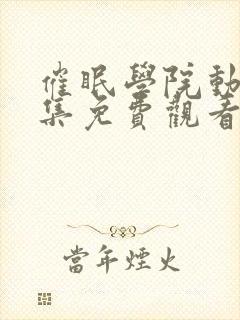 催眠學院動
集免費觀看
當年煙火